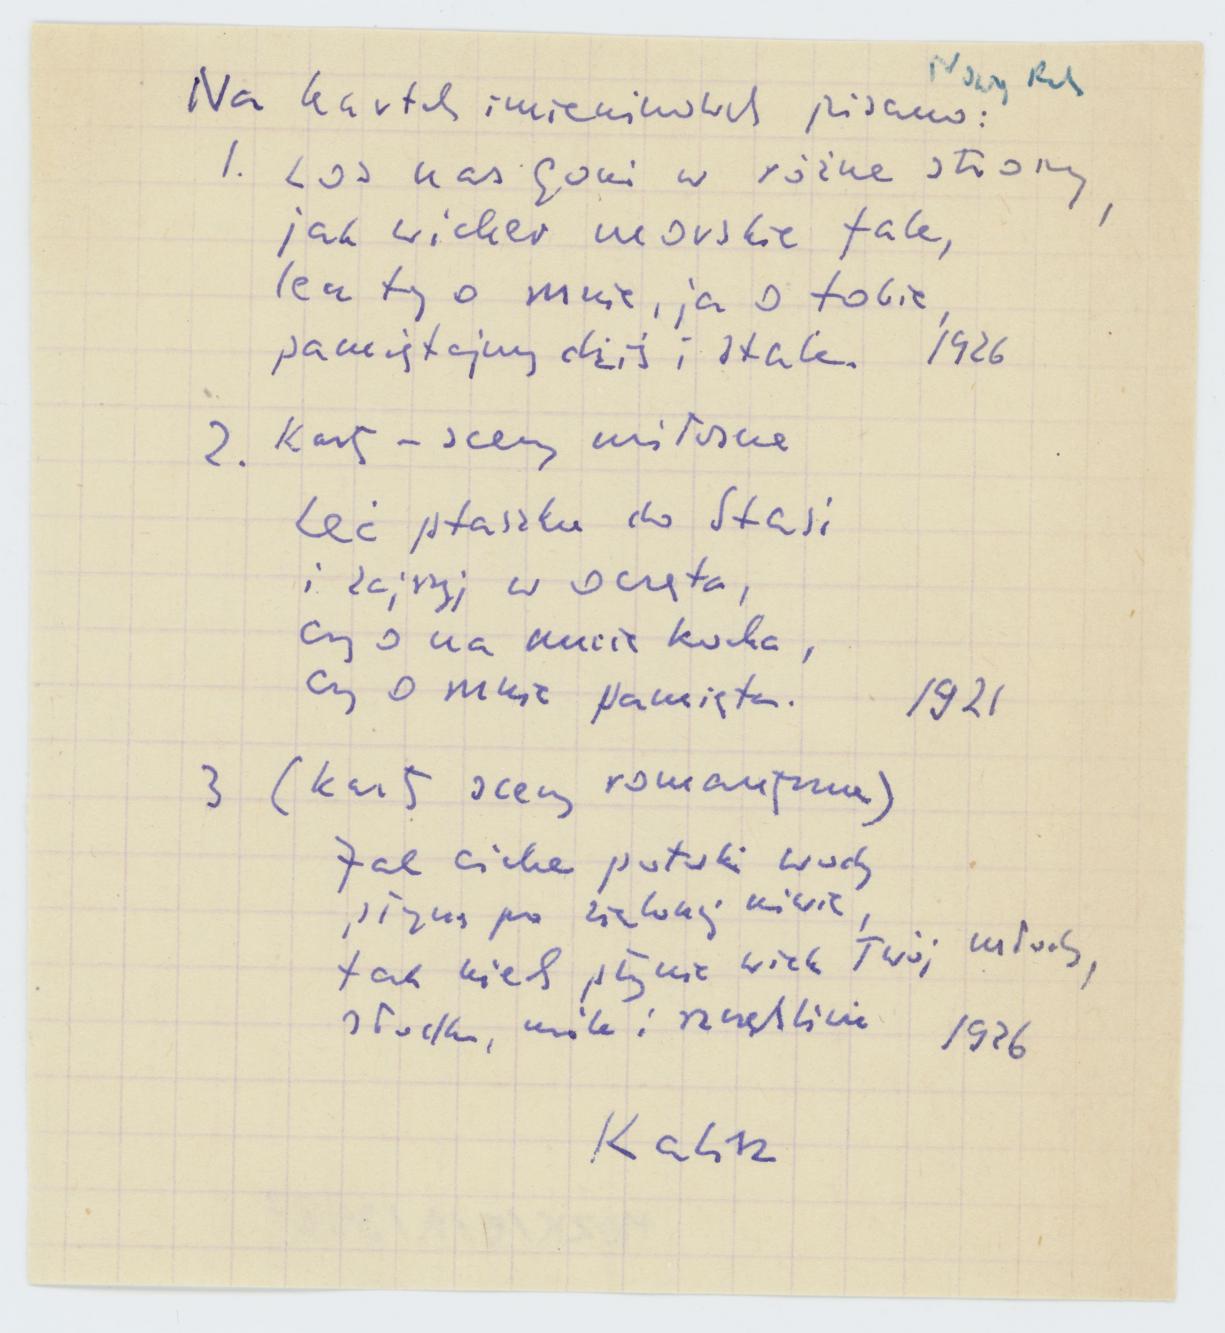 Nowy Rok
Na kartch imieninowch pisano:
1. Los nas goni w różne strony,
jak wicher morskie fale,
lecz ty o mnie, ja o tobie,
pamiętajmy dziś i stale. 1926
2. Karty – sceny miłosne
Leć ptaszku do Stasi
i zajrzyj w oczęta,
czy ona mnie kocha,
czy o mnie pamięta. 1921
3 (karty sceny romantyczne)
Jak ciche potoki wody
płyną po zielonej niwie,
tak niech płynie wiek Twój młody,
słodko, mile i szczęśliwie 1926
Kalisz